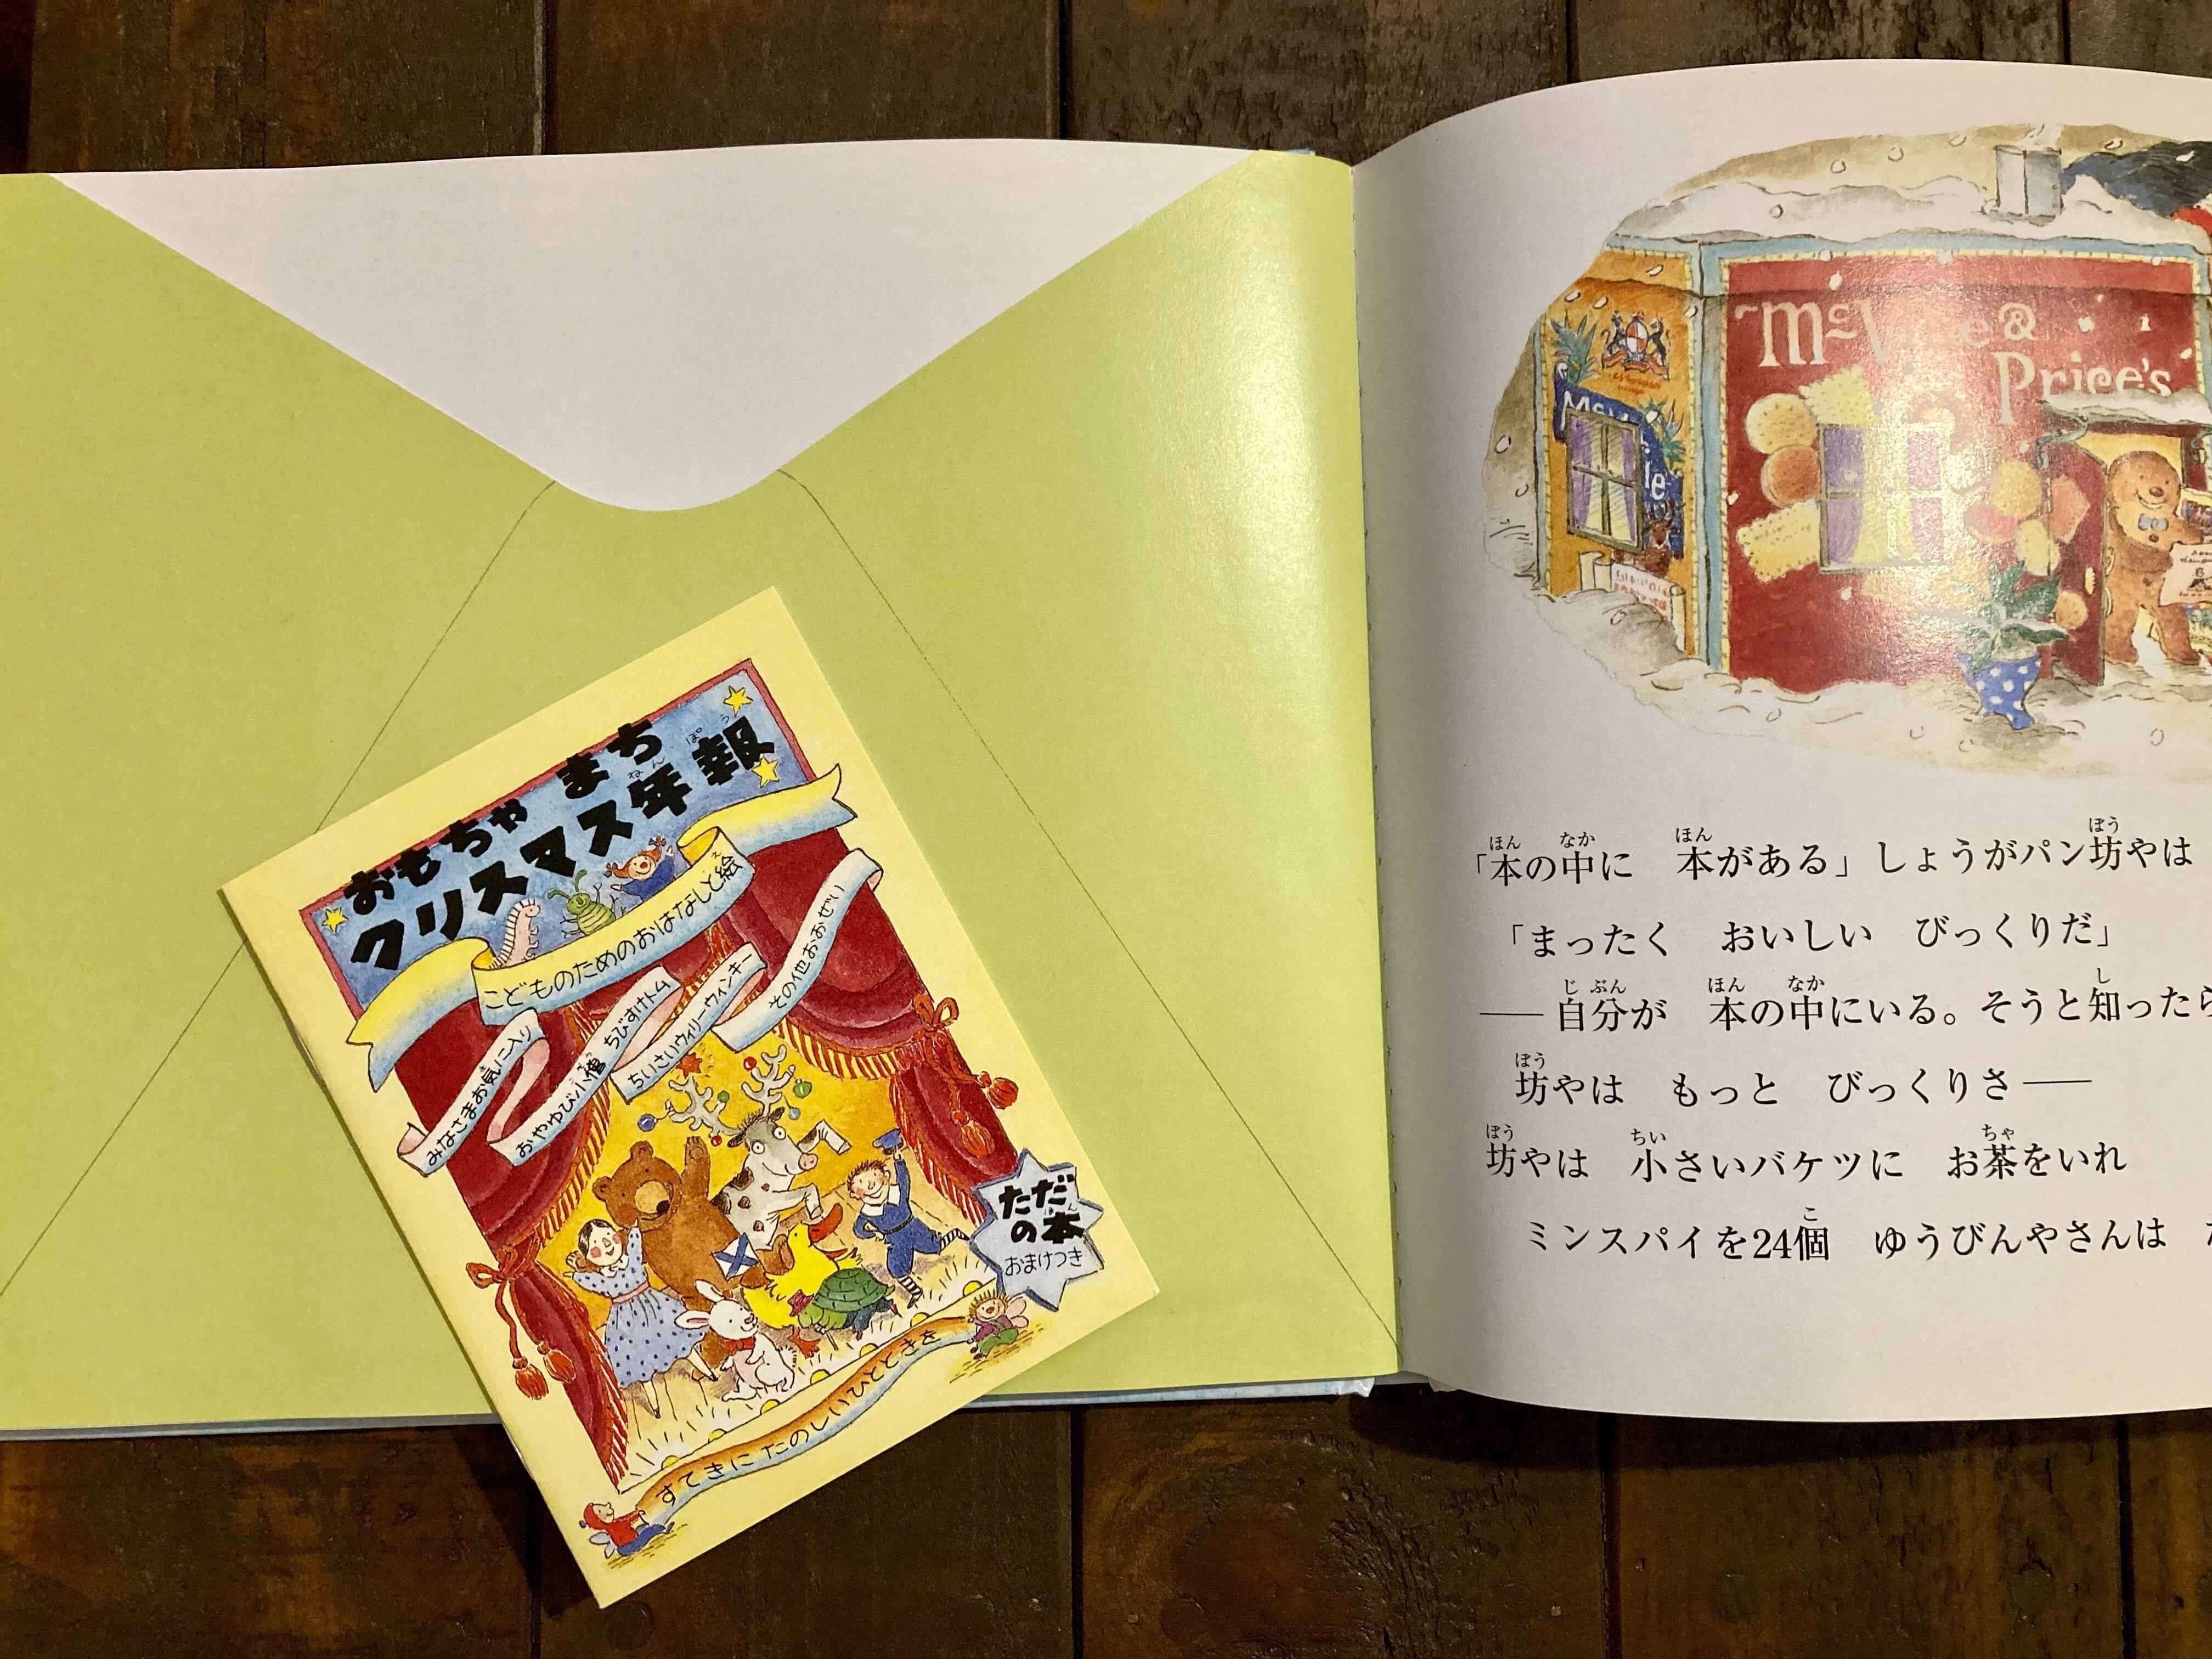 おもちゃ まち
クリスマス年報
ねん ぽう
こどものためのおはなしと絵
え
みなさまお気に入り
おやゆび小僧 ちびすけトム
ちいさいウィリーウィンキー
その他おおぜい
ただ
の本
おまけつき
すてきに たのしいひとときを
McV e &
Price's
ほん なか ほん ぽう
「本の中に 本がある」しょうがパン坊やは
「まったく おいしい びっくりだ」
じ ぶん ほん なか し
── 自分が 本の中にいる。そうと知ったら
ぼう
坊やは もっと びっくりさ ──
ぼう ちい ちゃ
坊やは 小さいバケツに お茶をいれ
こ
ミンスパイを24個 ゆうびんやさんは